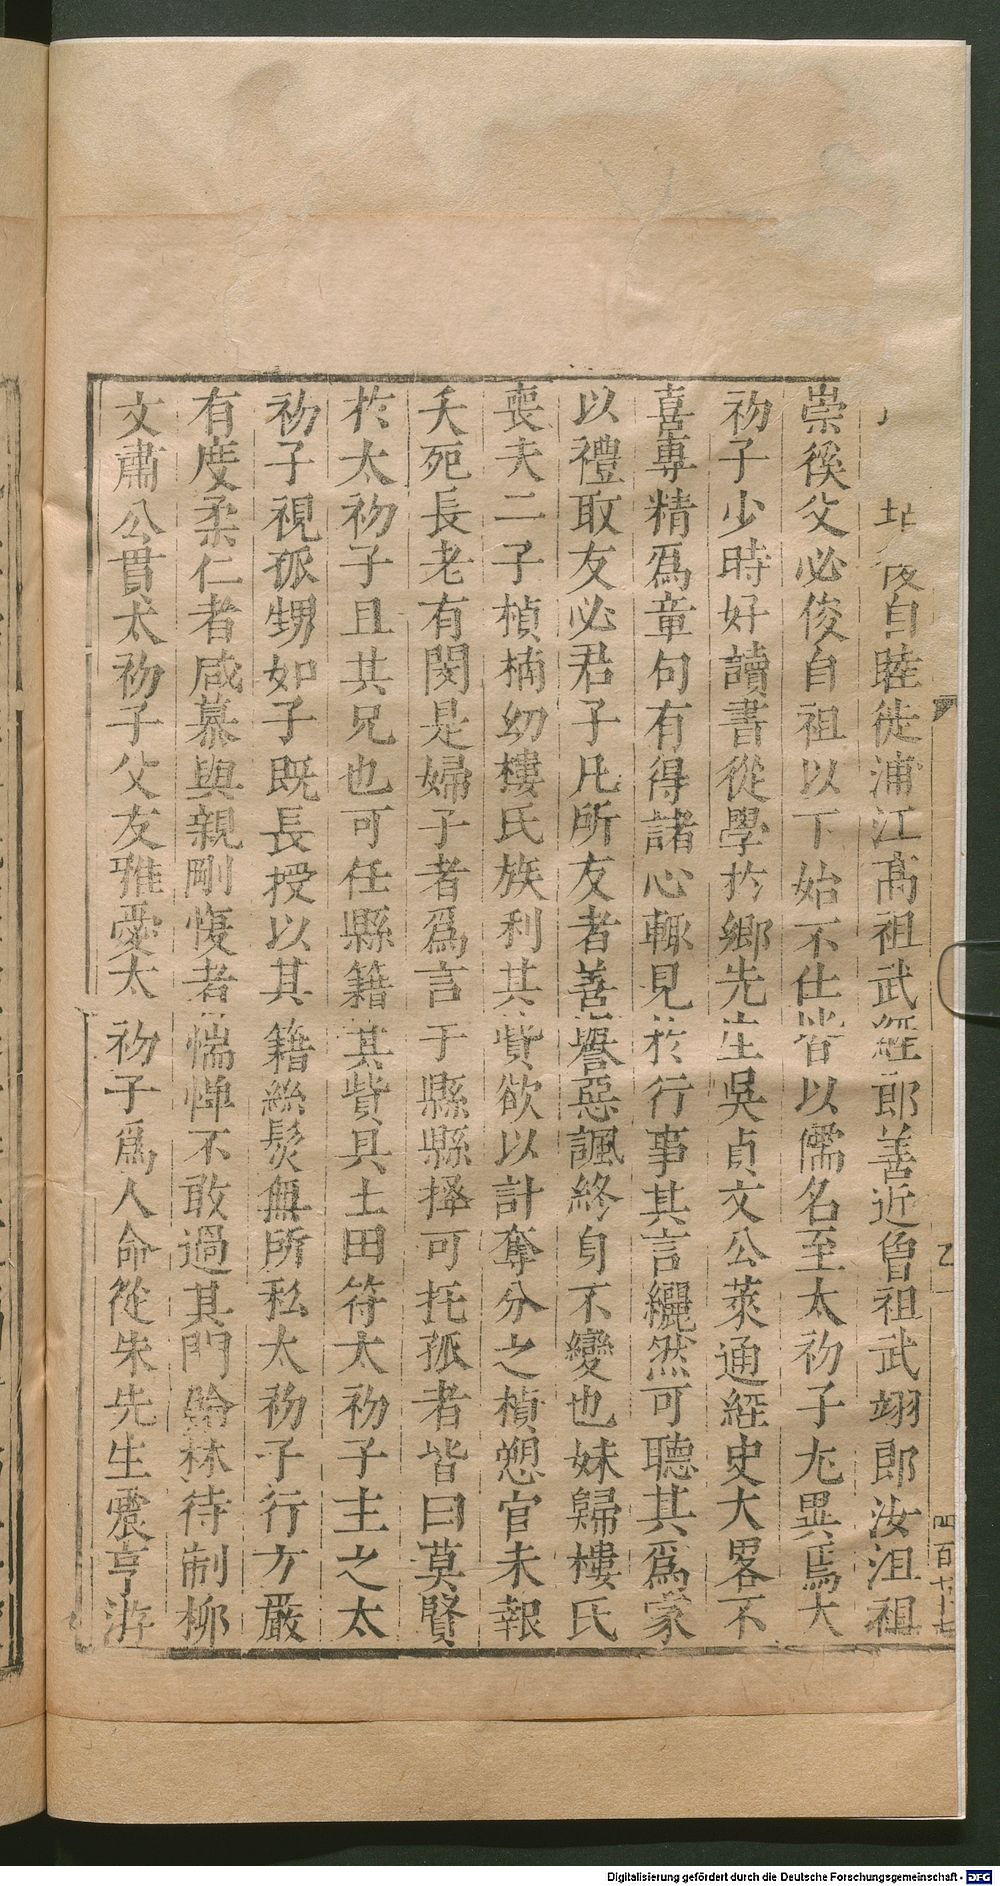 自睦徙浦江高祖武經郎善近曾祖武翊郎汝沮祖
崇徯父必俊自祖以下始不仕皆以儒名至太初子尤異焉太
初子少時好讀書從學扵鄉先生吳貞文公萊通經史大畧不
喜專精爲章句有得諸心輙見扵行事其言纚然可聽其爲家
以禮取友必君子凡所友者善譽惡諷終身不變也妹歸樓氏
喪夫二子楨楠幼樓氏族利其貲欲以計奪分之楨愬官未報
夭死長老有閔是婦子者爲言于縣縣擇可托孤者皆曰莫賢
扵太初子且其兄也可任縣籍其貲具土田符太初子主之太
初子視孤甥如子既長授以其籍絲髮無所私太初子行方嚴
有度柔仁者咸慕與親剛愎者惴惮不敢過其門翰林待制柳
文肅公貫太初子父友雅愛太初子爲人命從朱先生震亨游
四百十七
Digitalisierung gefördert durch die Deutsche Forschungsgemeinschaft - DFG